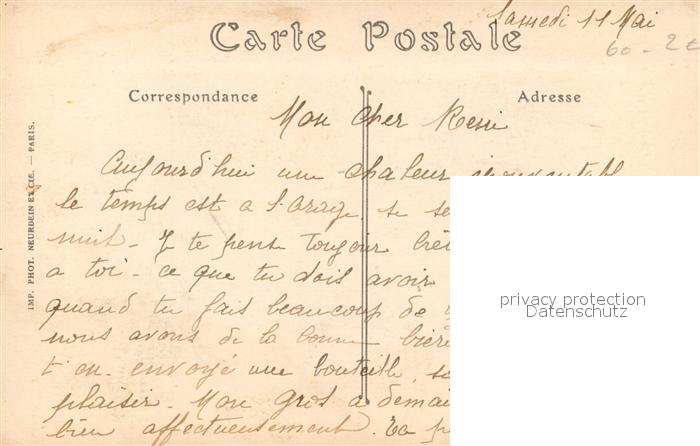 Samedi 11 Mai
Carte Postale
60 - 2t
Correspondance
Adresse
Mon cher Remi
Aujourd'hui une chaleur épouvantabl
le temps est a l'orage, se se
nuit - Je te pense toujour
a toi - ce que tu dois avoir
quand tu fais beaucoup de
nous avons de la bonne bière
t'en envoyé une bouteille, se
plaisir. Mon gros a demai
bien affectueusement. Ta p
IMP. PHOT. NEURDEIN ET CIE. — PARIS.
privacy protection
Datenschutz